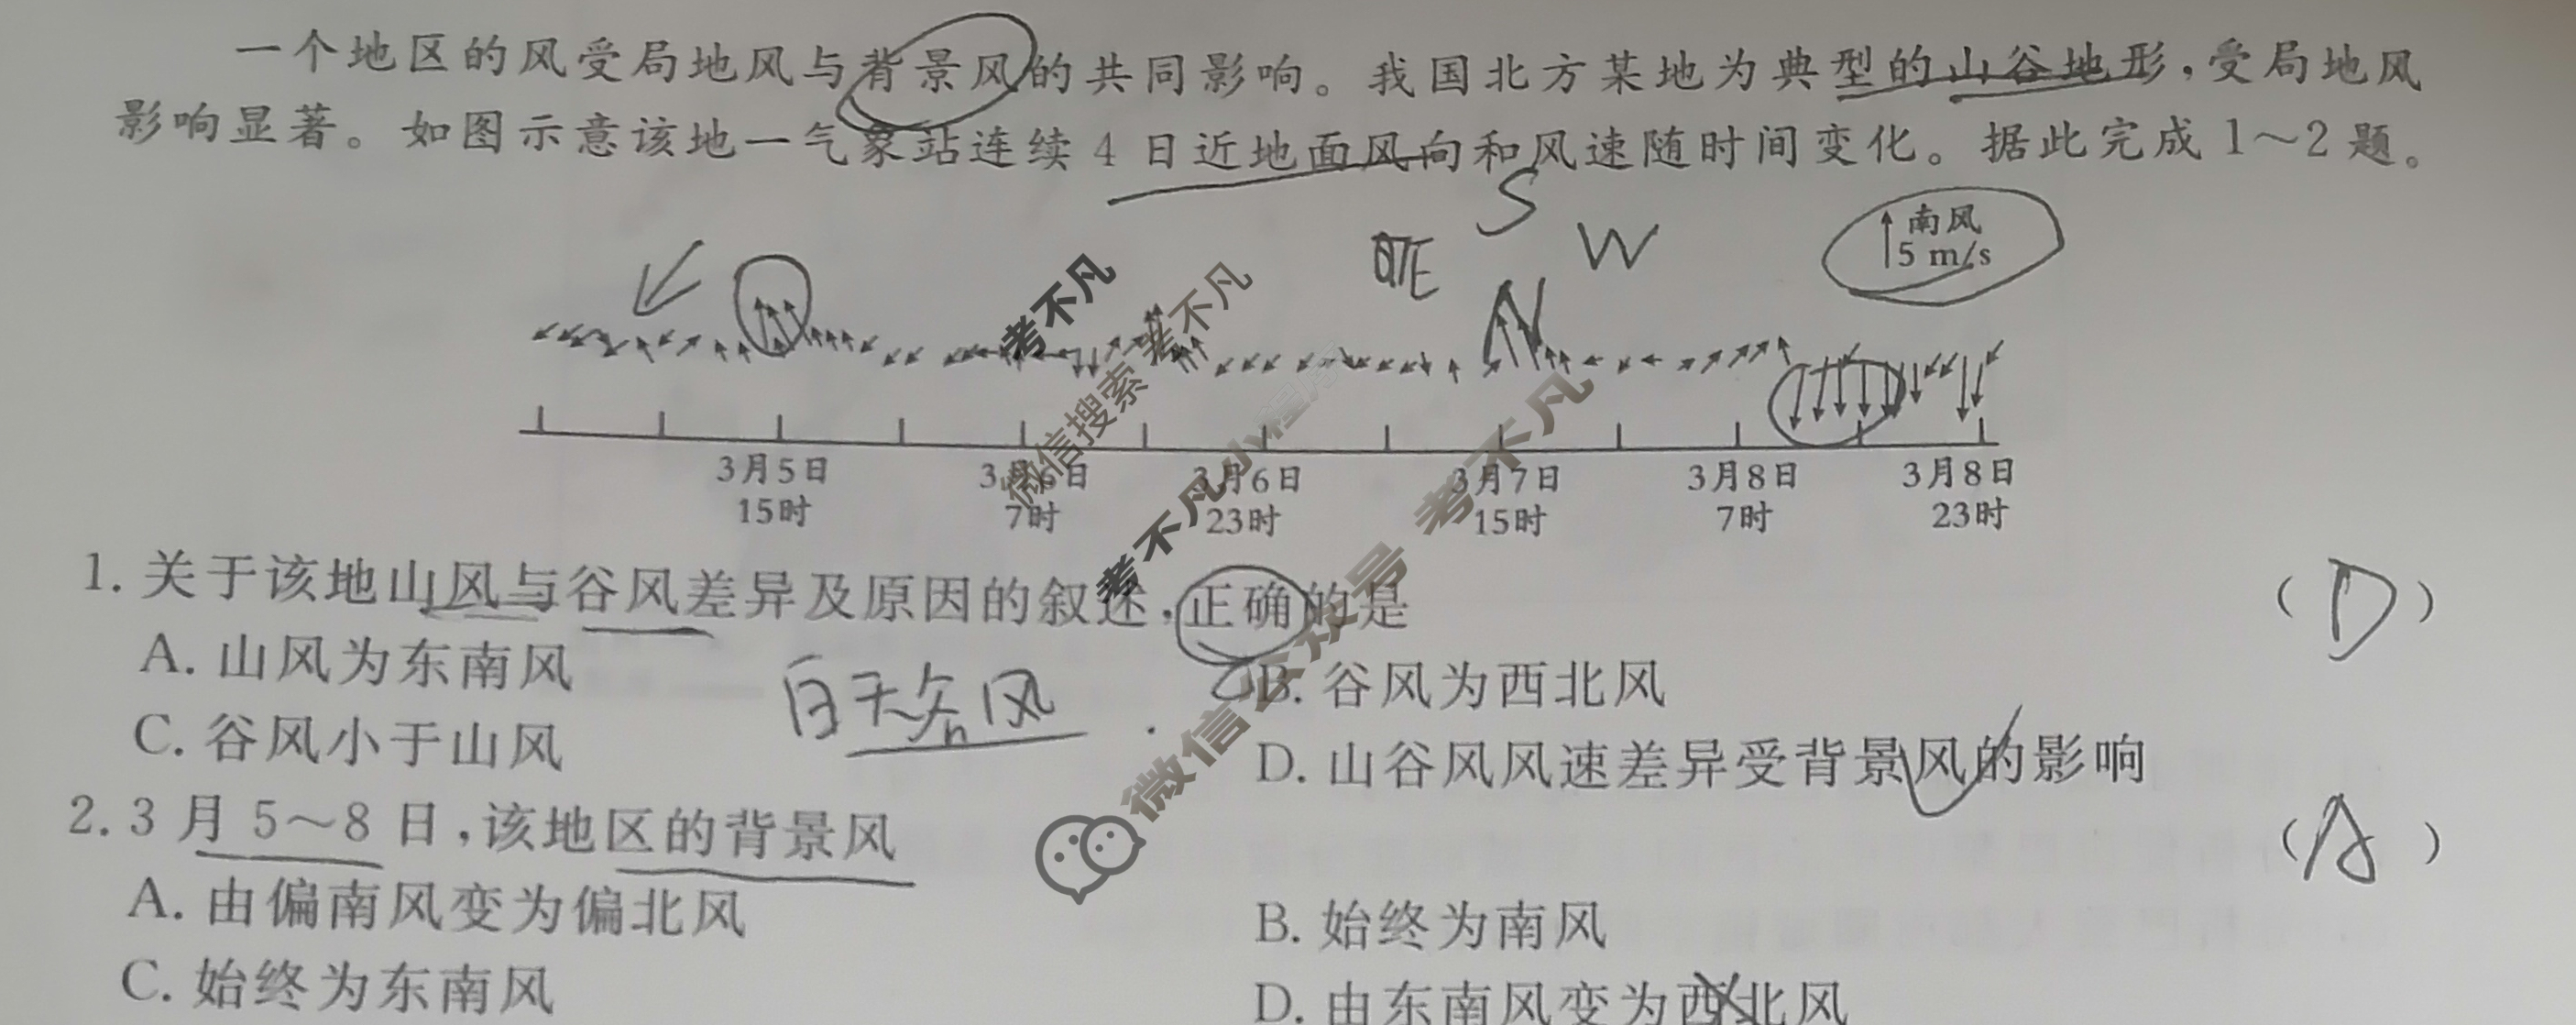 一个地区的风受局地风与背景风的共同影响。我国北方某地为典型的山谷地形,受局地风
影响显著。如图示意该地一气象站连续4日近地面风向和风速随时间变化。据此完成1～2题。
S
W
E
N
南风
5 m/s
考不凡
考不凡
微信搜索
小程序
考不凡
考不凡
微信公众号
3月5日
15时
3月6日
7时
3月6日
23时
3月7日
15时
3月8日
7时
3月8日
23时
1. 关于该地山风与谷风差异及原因的叙述,正确的是
( D )
A. 山风为东南风
B. 谷风为西北风
白天谷风
C. 谷风小于山风
D. 山谷风风速差异受背景风的影响
2. 3月5～8日,该地区的背景风
( A )
A. 由偏南风变为偏北风
B. 始终为南风
C. 始终为东南风
D. 由东南风变为西北风